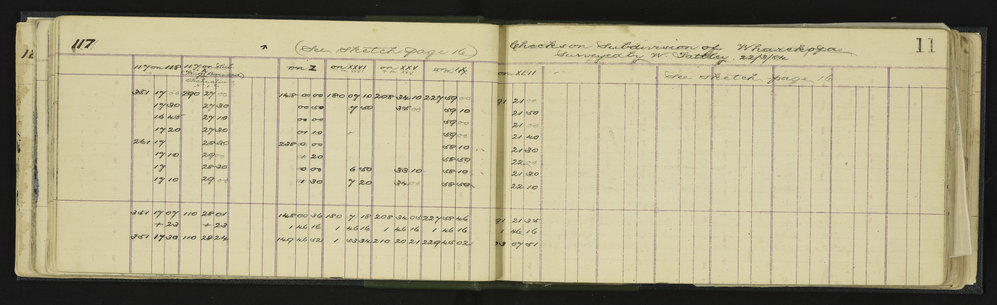 117 (See Sketch page 16) Checks on Subdivision of Wharekopa 11
Surveyed by W. Tattley, 22/3/84
117 on 118 117 on on Z on XXVI on XXV on IX on XLII See Sketch page 16
351 17 00 290 27 00 148 00 00 180 07 10 208 34 10 227 59 00 91 21 00
17 30 27 30 00 50 7 50 35 00 59 10 21 50
16 45 27 10 00 00 59 00 21 00
17 20 27 30 01 10 59 00 21 40
261 17 28 30 238 0 00 58 10 21 30
17 10 29 00 1 20 58 50 22 00
17 28 30 0 00 6 50 33 10 58 30 21 30
17 10 29 00 1 30 7 20 34 00 58 50 22 10
351 17 07 110 28 01 148 00 36 180 7 18 208 34 05 227 58 46 91 21 35
+ 23 + 23 1 46 16 1 46 16 1 46 16 1 46 16 1 46 16
351 17 30 110 28 24 149 46 52 1 53 34 210 20 21 229 45 02 93 07 51